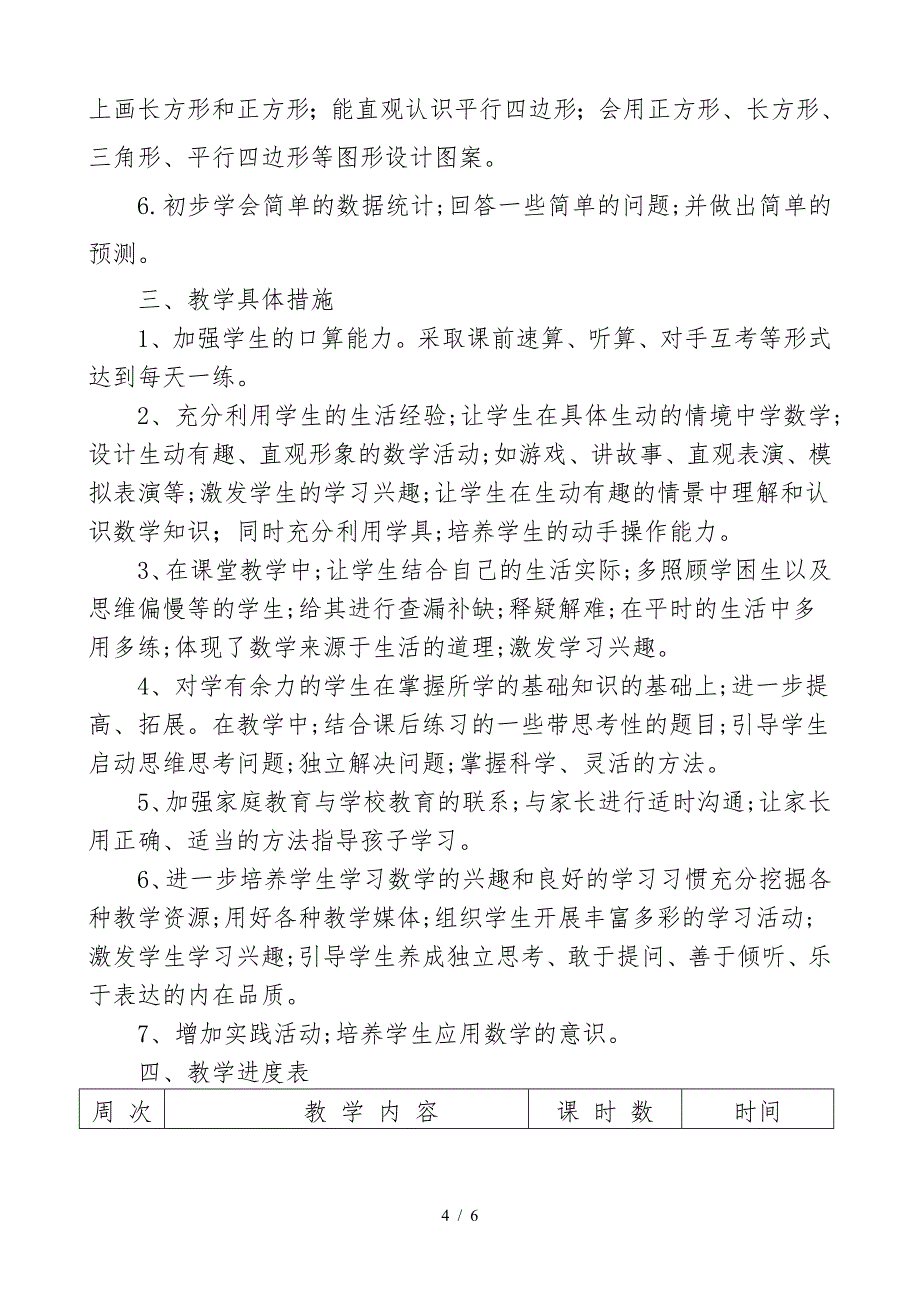 上画长方形和正方形；能直观认识平行四边形；会用正方形、长方形、
三角形、平行四边形等图形设计图案。
6.初步学会简单的数据统计;回答一些简单的问题;并做出简单的
预测。
三、教学具体措施
1、加强学生的口算能力。采取课前速算、听算、对手互考等形式
达到每天一练。
2、充分利用学生的生活经验;让学生在具体生动的情境中学数学;
设计生动有趣、直观形象的数学活动;如游戏、讲故事、直观表演、模
拟表演等;激发学生的学习兴趣;让学生在生动有趣的情景中理解和认
识数学知识；同时充分利用学具;培养学生的动手操作能力。
3、在课堂教学中;让学生结合自己的生活实际;多照顾学困生以及
思维偏慢等的学生;给其进行查漏补缺;释疑解难;在平时的生活中多
用多练;体现了数学来源于生活的道理;激发学习兴趣。
4、对学有余力的学生在掌握所学的基础知识的基础上;进一步提
高、拓展。在教学中;结合课后练习的一些带思考性的题目;引导学生
启动思维思考问题;独立解决问题;掌握科学、灵活的方法。
5、加强家庭教育与学校教育的联系;与家长进行适时沟通;让家长
用正确、适当的方法指导孩子学习。
6、进一步培养学生学习数学的兴趣和良好的学习习惯充分挖掘各
种教学资源;用好各种教学媒体;组织学生开展丰富多彩的学习活动;
激发学生学习兴趣;引导学生养成独立思考、敢于提问、善于倾听、乐
于表达的内在品质。
7、增加实践活动;培养学生应用数学的意识。
四、教学进度表
周 次 教 学 内 容 课 时 数 时间
4 / 6